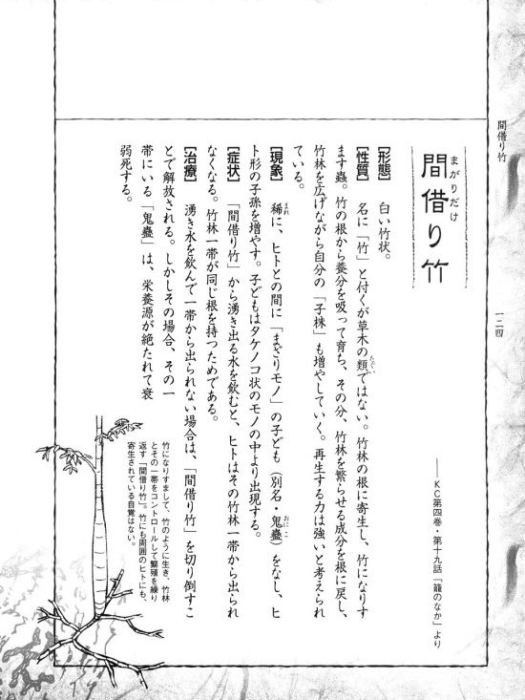 間借り竹
一二四
間借り竹
まがりだけ
――KC第四巻・第十九話「籠のなか」より
【形態】　白い竹状。
【性質】　名に「竹」と付くが草木の類ではない。竹林の根に寄生し、竹になりす
たぐい
ます蟲。竹の根から養分を吸って育ち、その分、竹林を繁らせる成分を根に戻し、
竹林を広げながら自分の「子株」も増やしていく。再生する力は強いと考えられ
ている。
【現象】　稀に、ヒトとの間に「まざりモノ」の子ども（別名・鬼蠱）をなし、ヒ
まれ
おにこ
ト形の子孫を増やす。子どもはタケノコ状のモノの中より出現する。
【症状】　「間借り竹」から湧き出る水を飲むと、ヒトはその竹林一帯から出られ
なくなる。竹林一帯が同じ根を持つためである。
【治療】　湧き水を飲んで一帯から出られない場合は、「間借り竹」を切り倒すこ
とで解放される。しかしその場合、その一
帯にいる「鬼蠱」は、栄養源が絶たれて衰
弱死する。
竹になりすまして、竹のように生き、竹林
とその一帯をコントロールして繁殖を繰り
返す「間借り竹」。竹にも周囲のヒトにも、
寄生されている自覚はない。